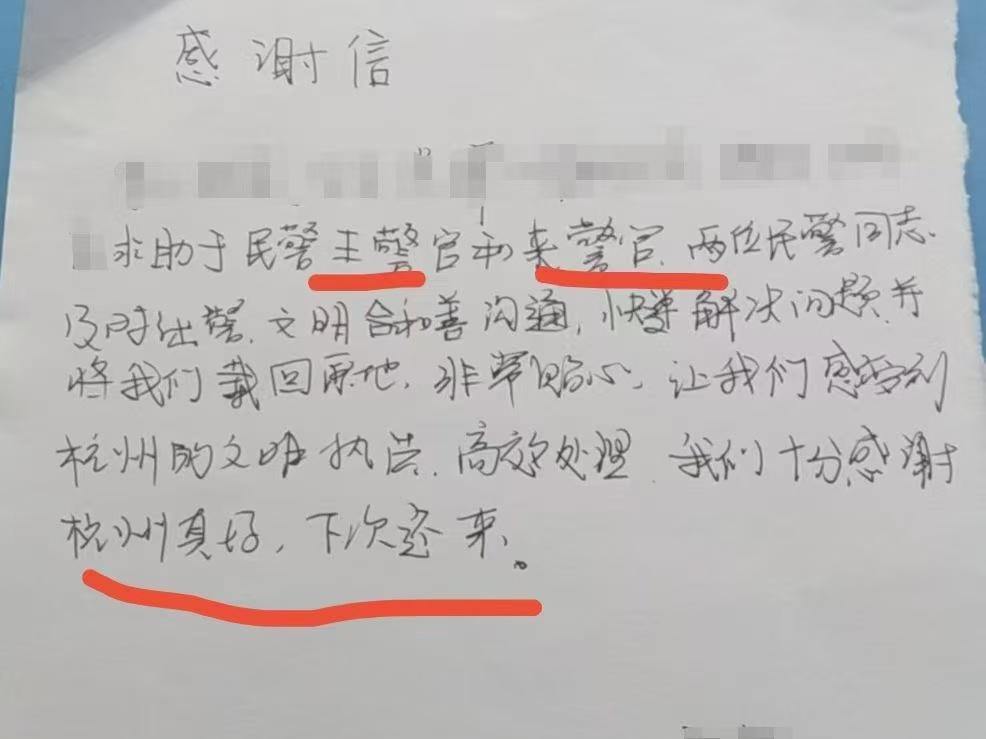 感谢信
求助于民警王警官和来警官.两位民警同志.
及时出警.文明合和善沟通,快速解决问题.并
将我们载回原地.非常贴心.让我们感受到
杭州的文明执法.高效处理.我们十分感谢
杭州真好,下次还来。